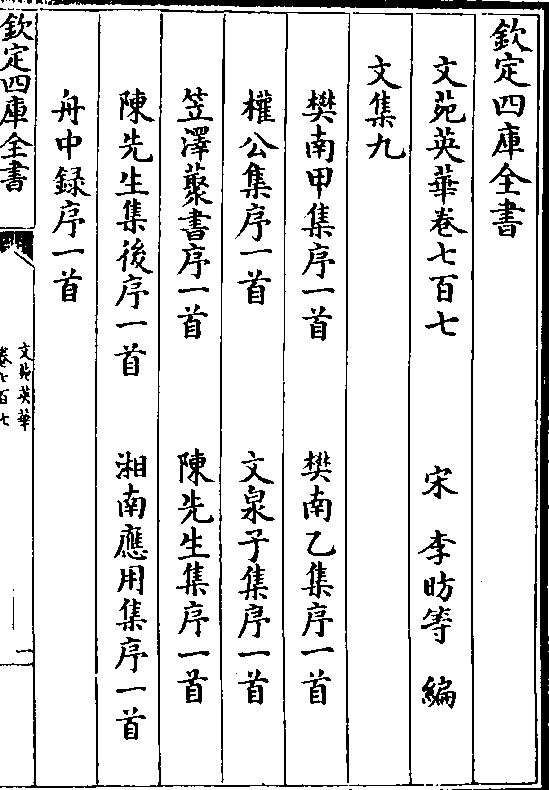 欽定四庫全書
文苑英華卷七百七　宋　李昉等　編
文集九
樊南甲集序一首　樊南乙集序一首
權公集序一首　文泉子集序一首
笠澤藂書序一首　陳先生集序一首
陳先生集後序一首　湘南應用集序一首
舟中録序一首
欽定四庫全書
文苑英華
卷七百七
一